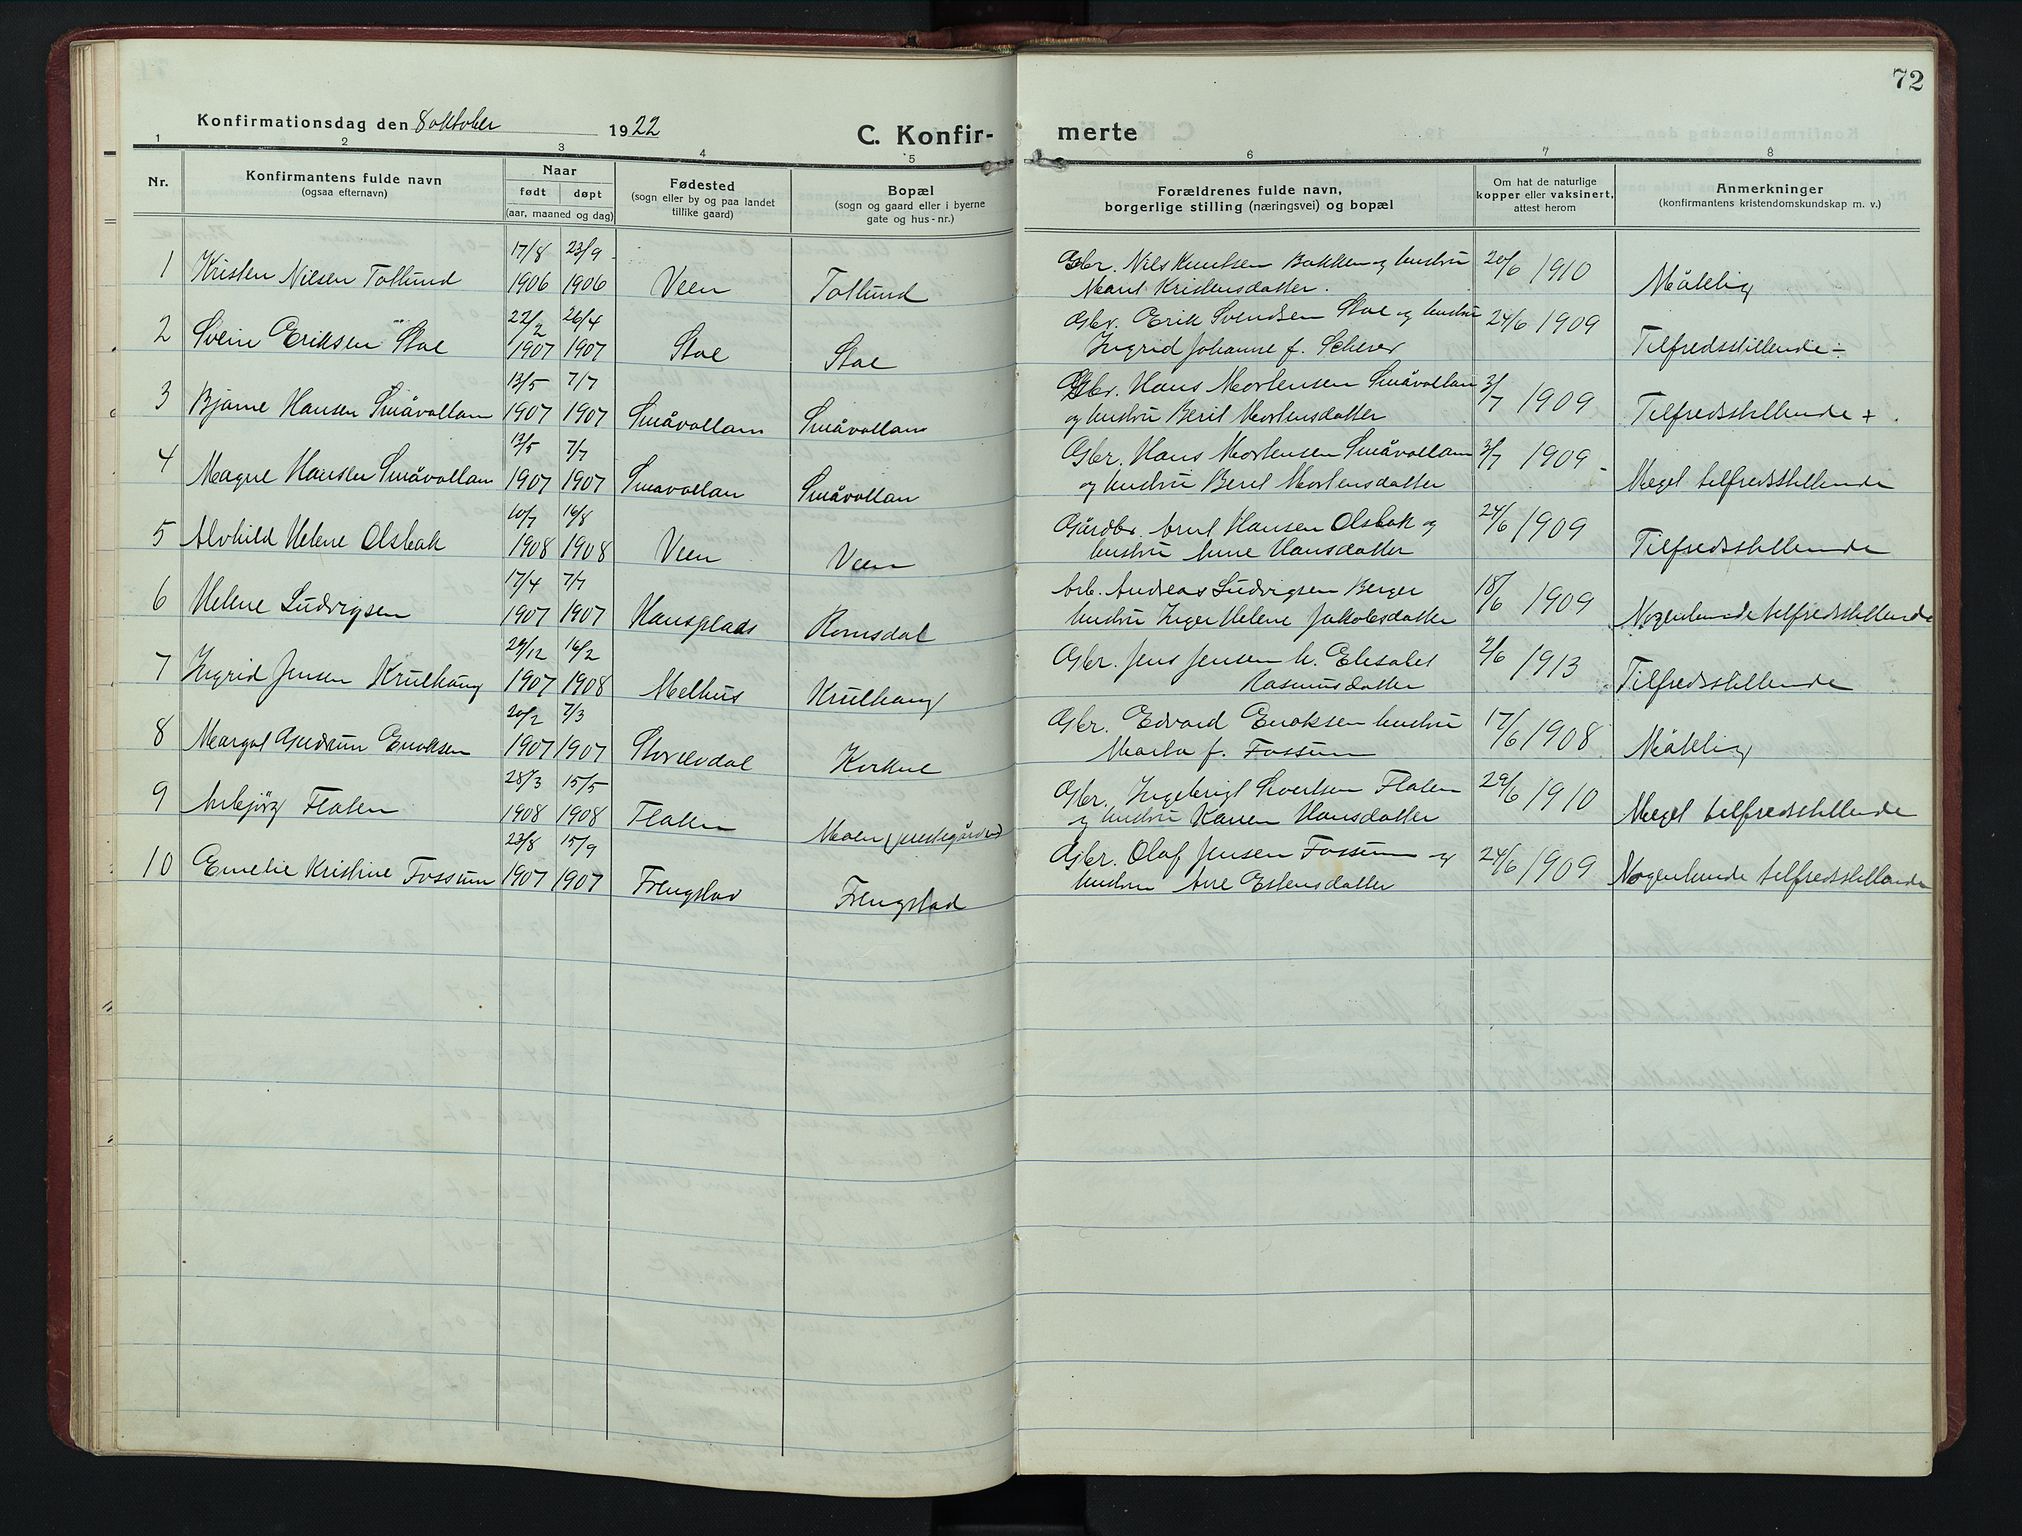 72
Konfirmationsdag den 8 oktober 1922
C. Konfir-
merte
1 2 3 4 5 6 7 8
Nr.
Konfirmantens fulde navn
(ogsaa efternavn)
Naar
født døpt
(aar, maaned og dag)
Fødested
(sogn eller by og paa landet
tillike gaard)
Bopæl
(sogn og gaard eller i byerne
gate og hus-nr.)
Forældrenes fulde navn,
borgerlige stilling (næringsvei) og bopæl
Om hat de naturlige
kopper eller vaksinert,
attest herom
Anmerkninger
(konfirmantens kristendomskundskap m. v.)
17/8 23/9 Gbr. Nils Knutsen Bakken og hustru 20/6 1910
1 Kristen Nilsen Totlund 1906 1906 Veen Totlund Marit Kristensdatter. Måtelig
22/2 26/4 Gbr. Erik Svendsen Stoe og hustru 24/6 1909
2 Svein Eriksen Stoe 1907 1907 Stoe Stoe Ingrid Johanne f. Scherer Tilfredsstillende -
13/5 7/7 Gbr. Hans Mortensen Småvollan 3/7 1909
3 Bjarne Hansen Småvollan 1907 1907 Småvollan Småvollan og hustru Berit Mortensdatter Tilfredsstillende +
13/5 7/7 Gbr. Hans Mortensen Småvollan 3/7 1909
4 Magne Hansen Småvollan 1907 1907 Småvollan Småvollan og hustru Berit Mortensdatter Meget tilfredsstillende
10/7 16/8 Gårdbr. Arnt Hansen Olsbak og 24/6 1909
5 Alvhild Helene Olsbak 1908 1908 Veen Veen hustru Anne Hansdatter Tilfredsstillende
17/4 7/7 Arb. Andreas Ludvigsen Berger 18/6 1909
6 Helene Ludvigsen 1907 1907 Hansplads Romsdal hustru Inger Helene Jakobsdatter Nogenlunde tilfredsstillende
29/12 16/2 Gbr. Jens Jensen h. Elisabet 2/6 1913
7 Ingrid Jensen Krulhaug 1907 1908 Melhus Krulhaug Rasmusdatter Tilfredsstillende
20/2 7/3 Gbr. Edvard Enoksen hustru 17/6 1908
8 Margot Gudrun Enoksen 1907 1907 Storelvdal Korkne Marta f. Fossum Måtelig
28/3 15/5 Gbr. Ingebrigt Sivertsen Flaten 29/6 1910
9 Anbjörg Flaten 1908 1908 Flaten Moen (prestegården) og hustru Karen Hansdatter Meget tilfredsstillende
23/8 15/9 Gbr. Olaf Jensen Fossum og 24/6 1909
10 Emelie Kristine Fossum 1907 1907 Frengstad Frengstad hustru Ane Estensdatter Nogenlunde tilfredsstillende